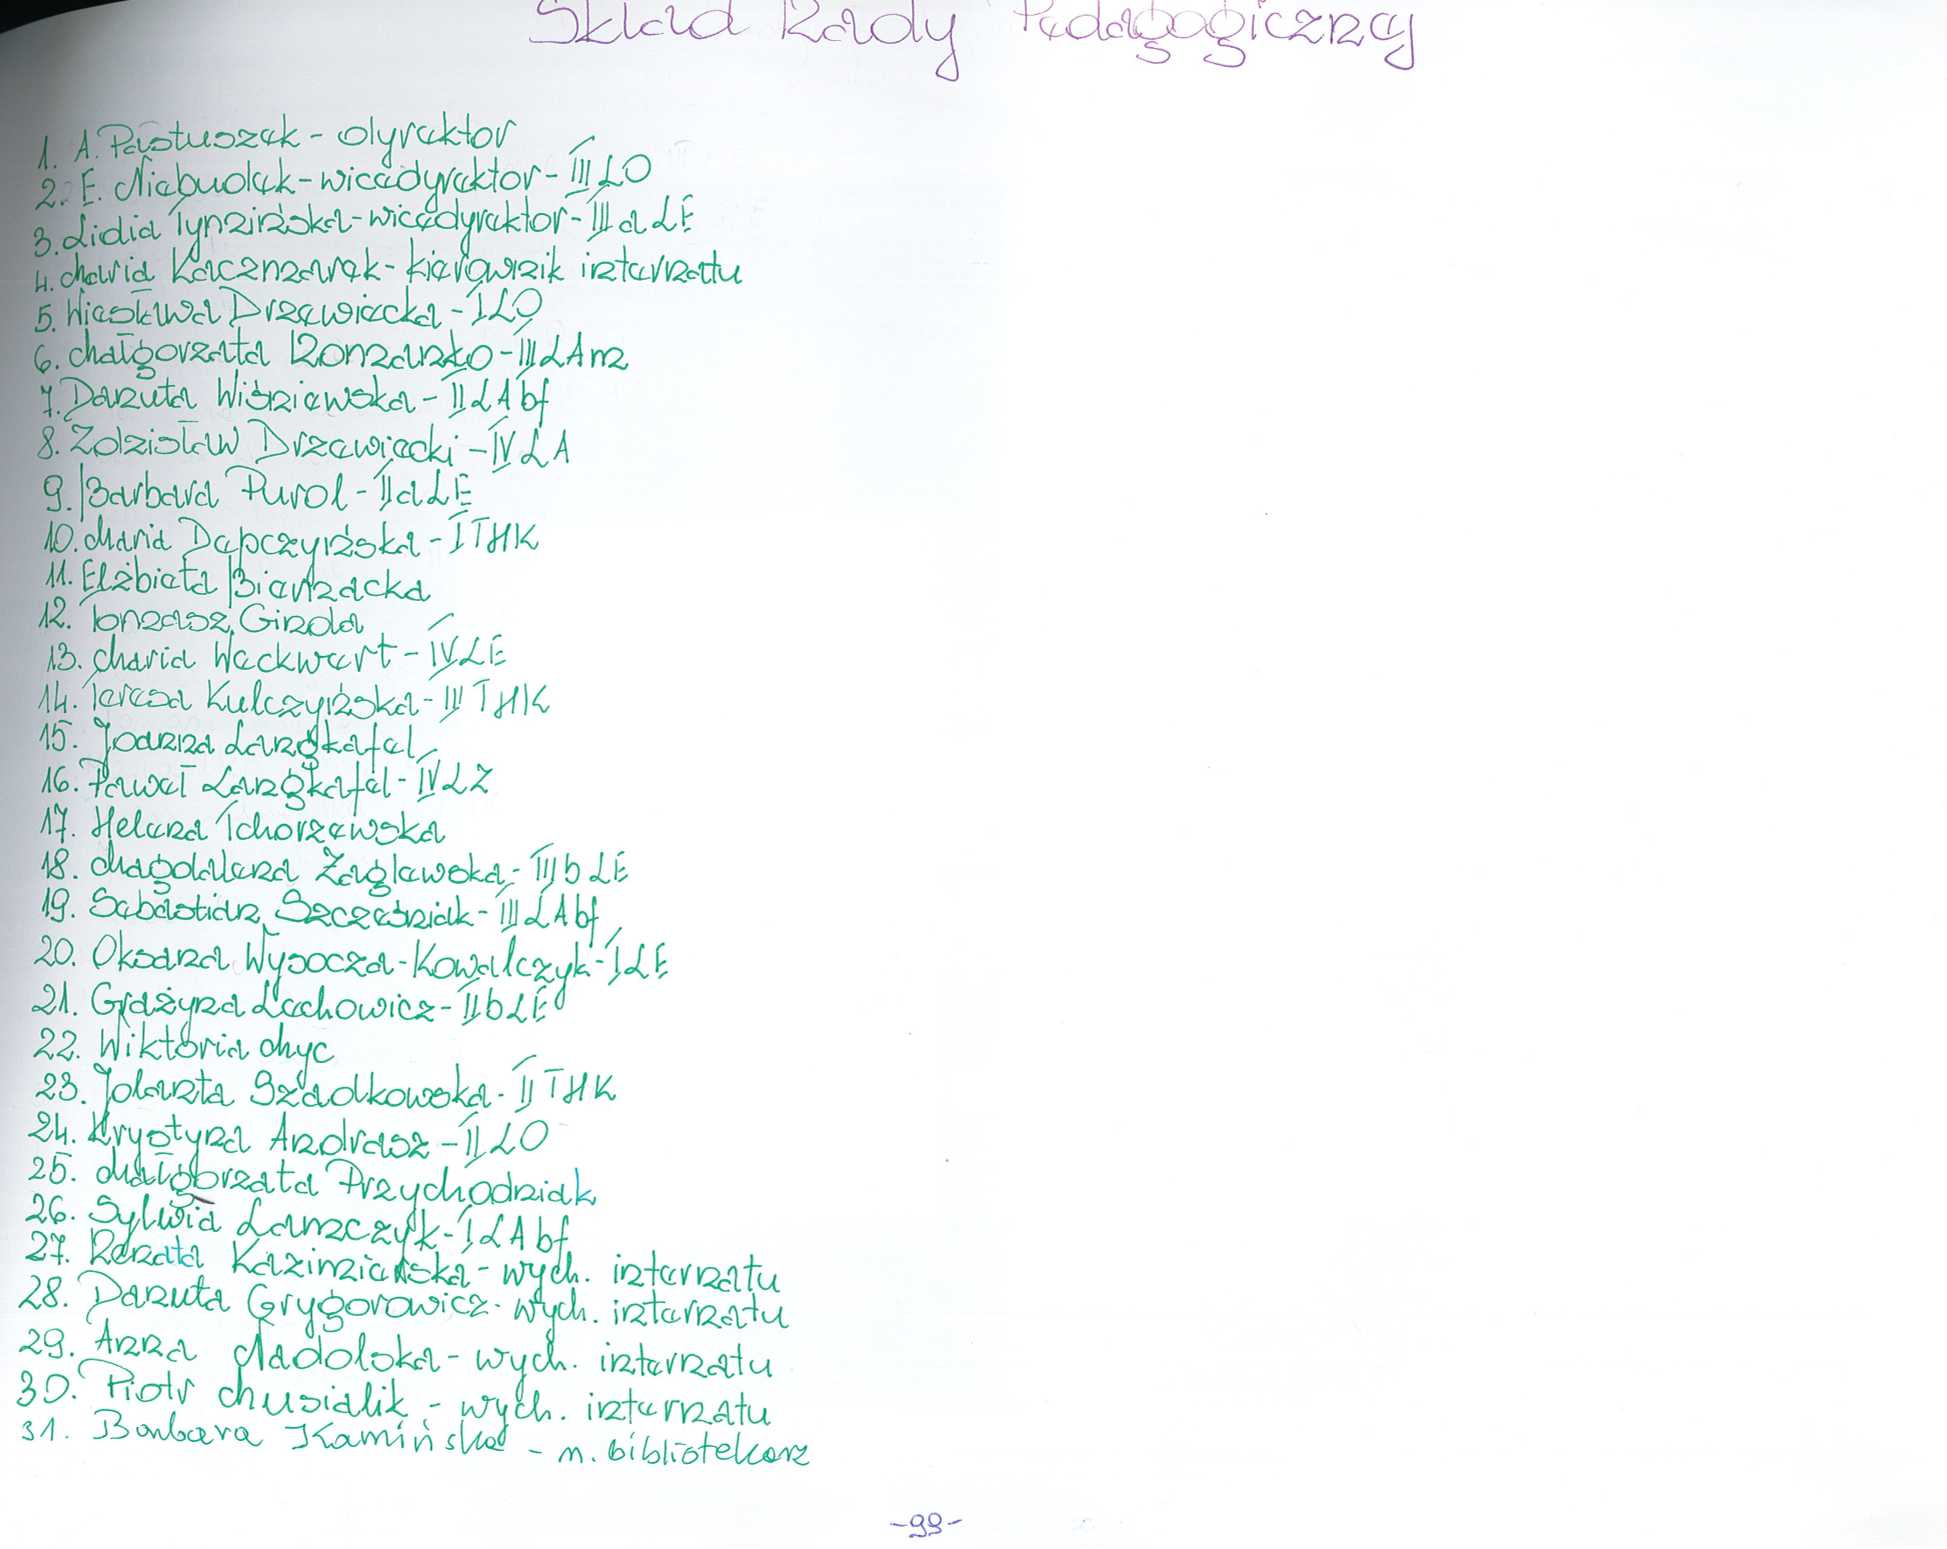 Skład Rady Pedagogicznej
1. A. Pastuszek - dyrektor
2. E. Niebudek - wicedyrektor - III LO
3. Lidia Tymińska - wicedyrektor - III a LE
4. Maria Kaczmarek - kierownik internatu
5. Wiesława Drzewiecka - I LO
6. Małgorzata Romanko - III LAm
7. Danuta Wiśniewska - II LAbf
8. Zdzisław Drzewiecki - IV LA
9. Barbara Purol - II a LE
10. Maria Depczyńska - I THK
11. Elżbieta Biernacka
12. Tomasz Ginda
13. Maria Weckwert - IV LE
14. Teresa Kulczyńska - III THK
15. Joanna Langkafel
16. Paweł Langkafel - IV LZ
17. Helena Tchorzewska
18. Magdalena Żaglewska - III b LE
19. Sebastian Szcześniak - III LAbf
20. Oksana Wysocza-Kowalczyk - I LE
21. Grażyna Lechowicz - II b LE
22. Wiktoria Myc
23. Jolanta Szadkowska - II THK
24. Krystyna Andrasz - II LO
25. Małgorzata Przychodniak
26. Sylwia Lamczyk - I LAbf
27. Renata Kazimierska - wych. internatu
28. Danuta Grygorowicz - wych. internatu
29. Anna Nadolska - wych. internatu
30. Piotr Musialik - wych. internatu
31. Barbara Kamińska - n. bibliotekarz
-99-